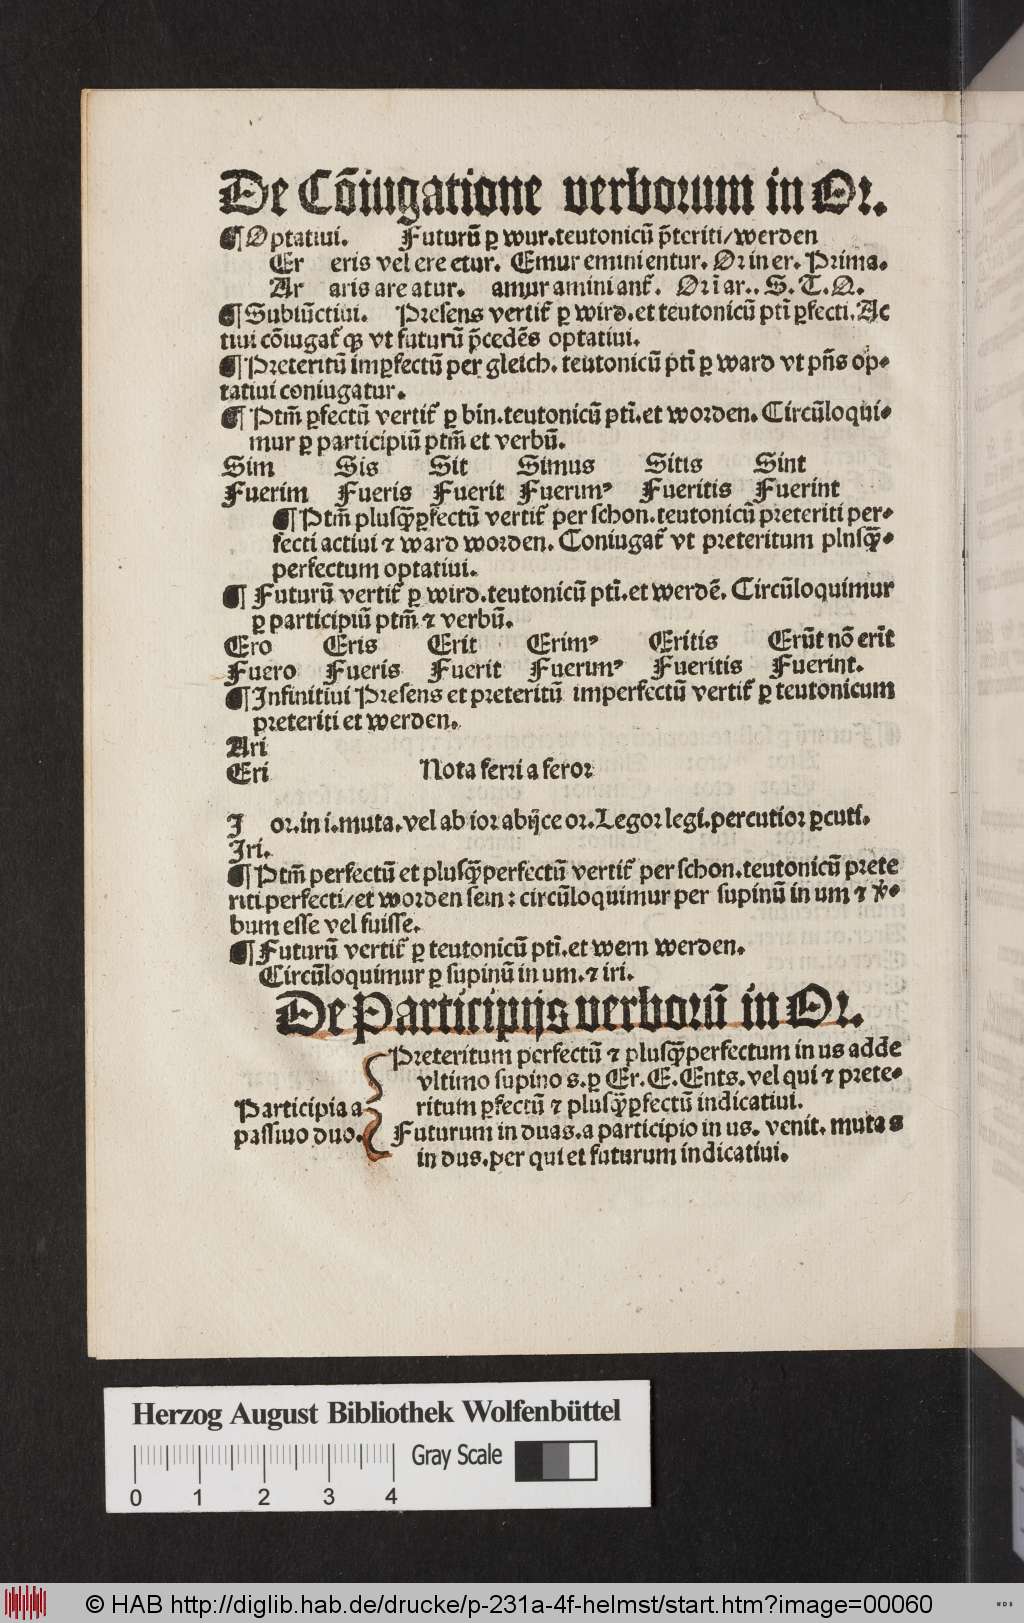 De Cōiugatione verborum in Or.
¶ Optatiui. Futurū ꝑ wur. teutonicū p̄teriti/werden
Er eris vel ere etur. Emur emini entur. Or in er. Prima.
Ar aris are atur. amur amini ant̄. Or ī ar.. S. T. Q.
¶ Subiūctiui. Presens vertit̄ ꝑ wird. et teutonicū ptī ꝑfecti. Ac
tiui cōiugat̄ qꝫ vt futurū p̄cedēs optatiui.
¶ Preteritū imꝑfectū per gleich. teutonicū ptī ꝑ ward vt pn̄s op⸗
tatiui coniugatur.
¶ Ptm̄ ꝑfectū vertit̄ ꝑ bin. teutonicū ptī. et worden. Circūloqui⸗
mur ꝑ participiū ptm̄ et verbū.
Sim Sis Sit Simus Sitis Sint
Fuerim Fueris Fuerit Fuerimꝰ Fueritis Fuerint
¶ Ptm̄ plusq̄ꝑfectū vertit̄ per schon. teutonicū preteriti per⸗
fecti actiui ⁊ ward worden. Coniugat̄ vt preteritum plnsq̄⸗
perfectum optatiui.
¶ Futurū vertit̄ ꝑ wird. teutonicū ptī. et werdē. Circūloquimur
ꝑ participiū ptm̄ ⁊ verbū.
Ero Eris Erit Erimꝰ Eritis Erūt nō erīt
Fuero Fueris Fuerit Fuerimꝰ Fueritis Fuerint.
¶ Infinitiui Presens et preteritū imperfectū vertit̄ ꝑ teutonicum
preteriti et werden.
Ari
Eri Nota ferri a feror
I or. in i. muta. vel ab ior abijce or. Legor legi. percutior ꝑcuti.
Iri.
¶ Ptm̄ perfectū et plusq̄perfectū vertit̄ per schon. teutonicū prete
riti perfecti/et worden sein: circūloquimur per supinū in um ⁊ v̄⸗
bum esse vel fuisse.
¶ Futurū vertit̄ ꝑ teutonicū ptī. et wern werden.
Circūloquimur ꝑ supinū in um. ⁊ iri.
De Participijs verborū in Or.
Preteritum perfectū ⁊ plusq̄perfectum in us adde
vltimo supino s. ꝑ Er. E. Ents. vel qui ⁊ prete⸗
Participia a ritum ꝑfectū ⁊ plusq̄ꝑfectū indicatiui.
passiuo duo. Futurum in duas. a participio in us. venit. muta s
in dus. per qui et futurum indicatiui.
Herzog August Bibliothek Wolfenbüttel
Gray Scale
0 1 2 3 4
© HAB http://diglib.hab.de/drucke/p-231a-4f-helmst/start.htm?image=00060